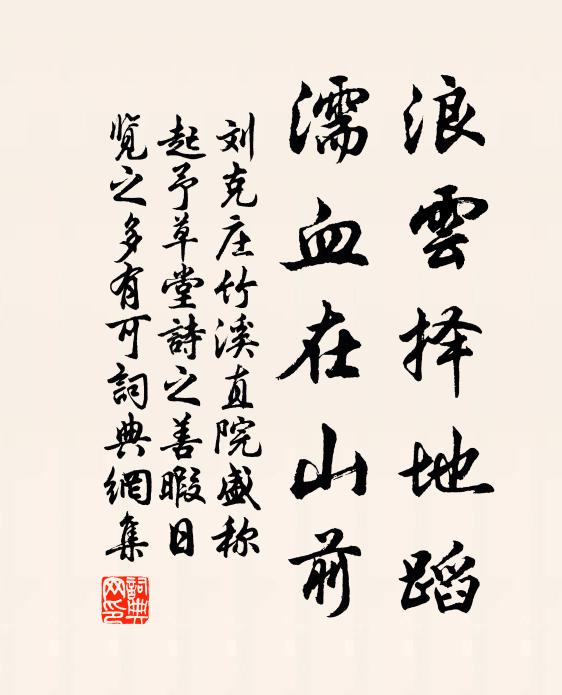 浪雲择地蹈
濡血在山前
刘克庄竹溪直院盛称
起予草堂詩之善暇日
览之多有可詞典網集
詞典网印